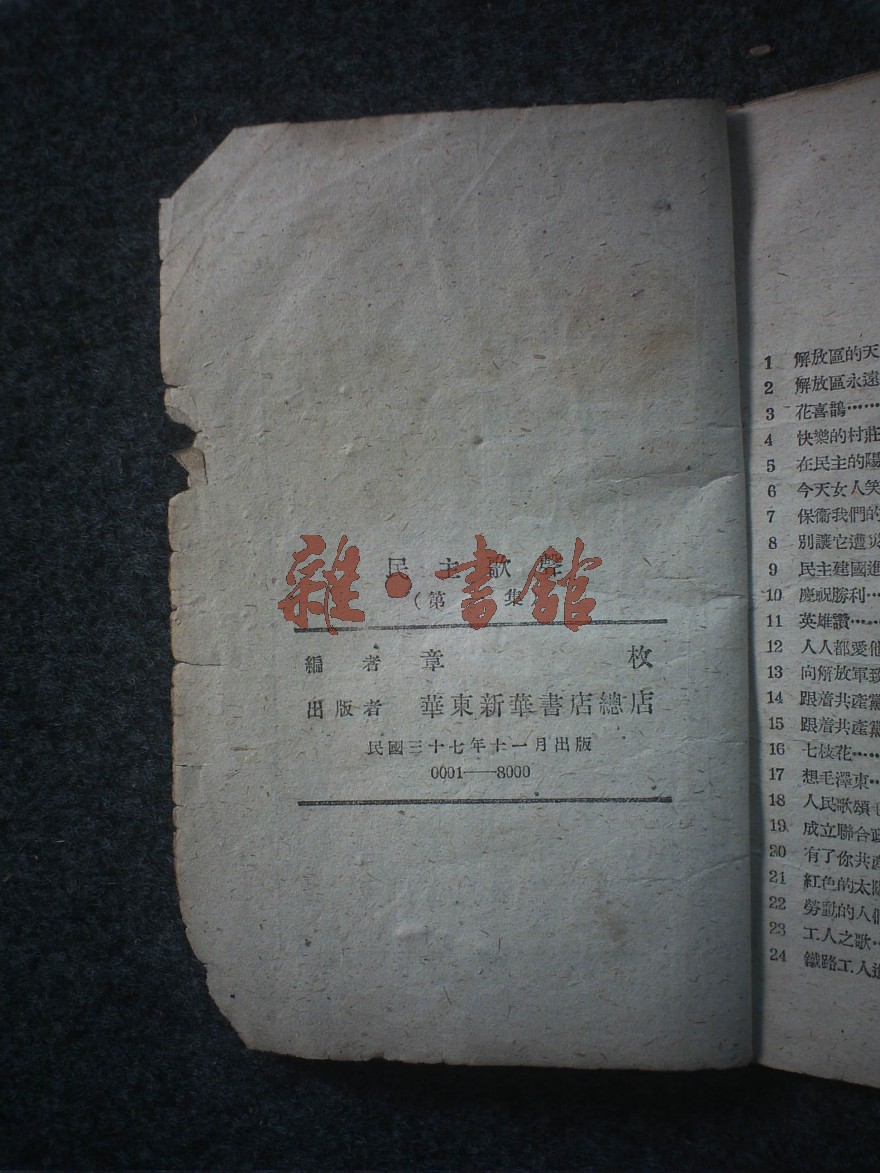 民主歌聲
（第 集
雜·書館
編者 章枚
出版者 華東新華書店總店
民國三十七年十一月出版
0001——8000
1 解放區的天
2 解放區永遠
3 花喜鵲……
4 快樂的村莊
5 在民主的陽
6 今天女人笑
7 保衞我們的
8 別讓它遭災
9 民主建國進
10 慶祝勝利…
11 英雄讚……
12 人人都愛他
13 向解放軍致
14 跟着共產黨
15 跟着共產黨
16 七枝花……
17 想毛澤東…
18 人民歌頌
19 成立聯合政
20 有了你共產
21 紅色的太陽
22 勞動的人們
23 工人之歌…
24 鐵路工人進